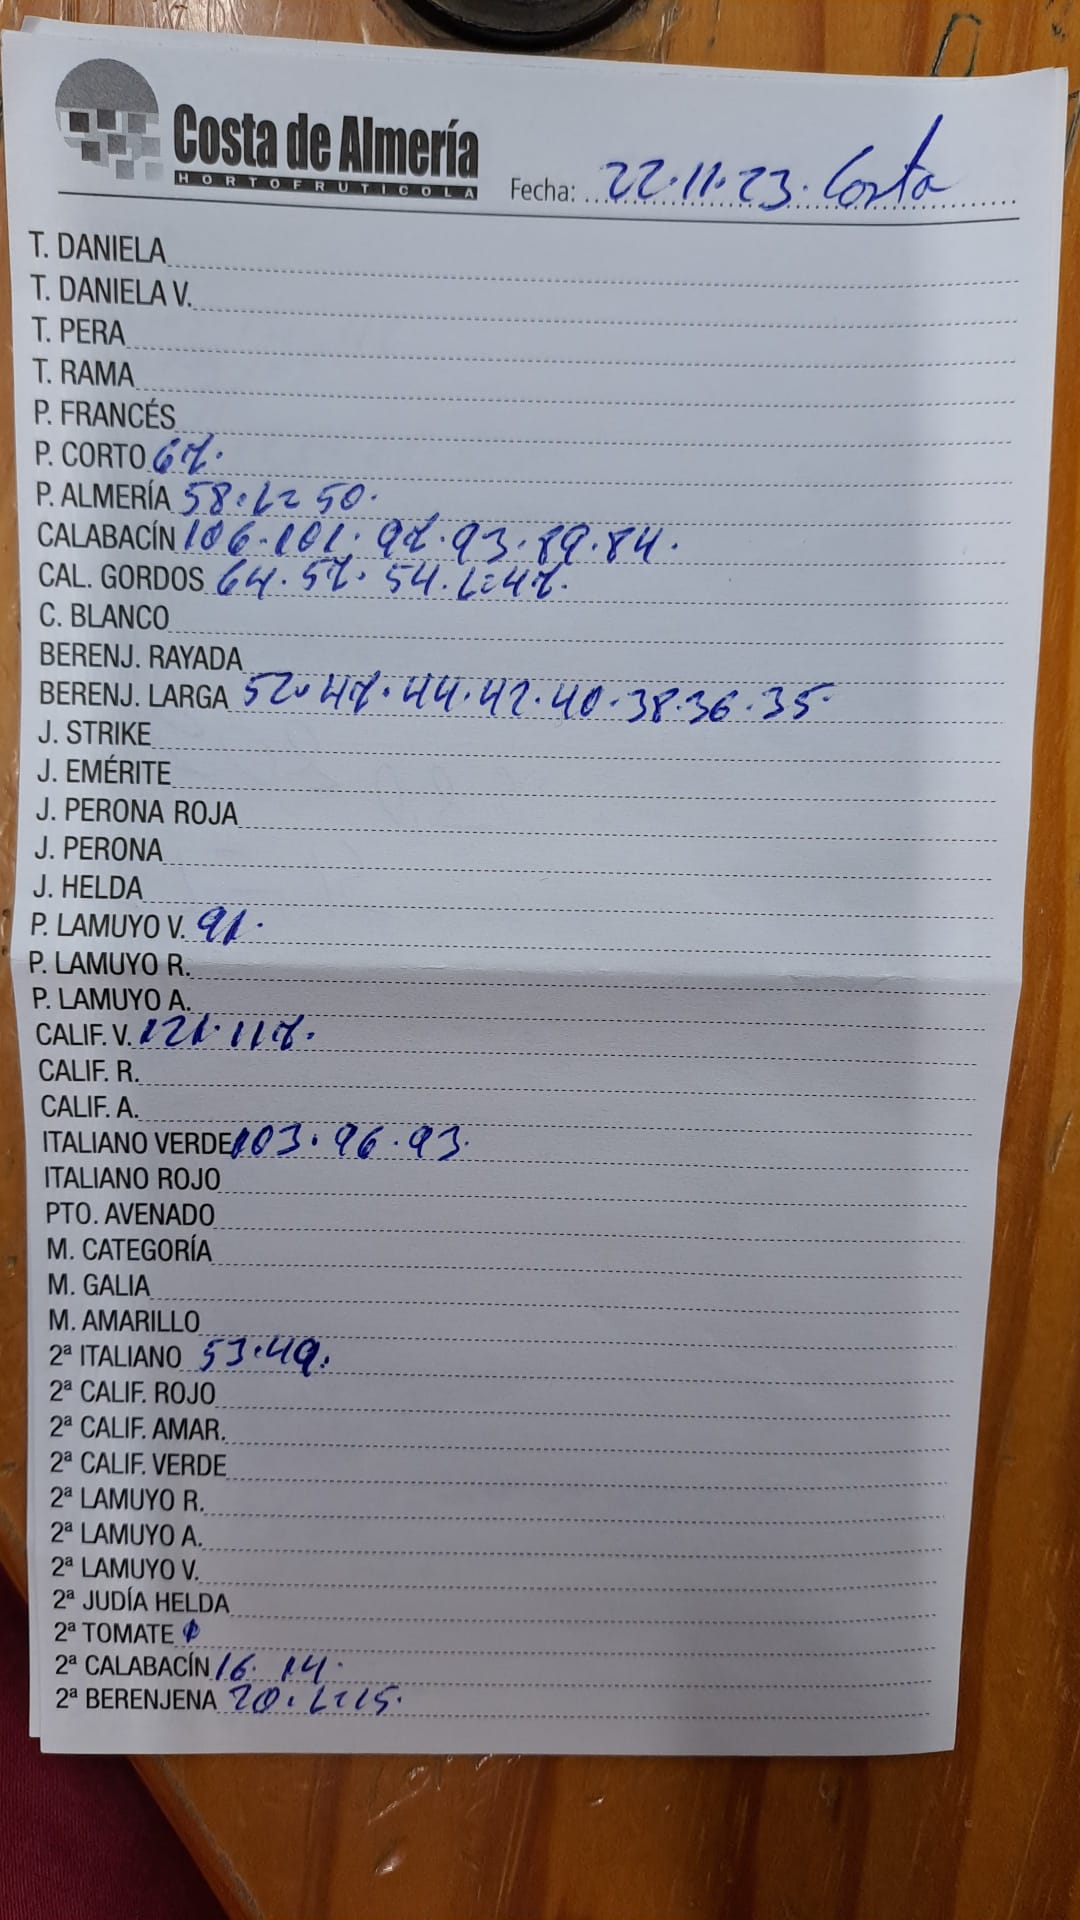 Costa de Almería
HORTOFRUTICOLA
Fecha: 22.11.23. Costa
T. DANIELA
T. DANIELA V.
T. PERA
T. RAMA
P. FRANCÉS
P. CORTO 67.
P. ALMERÍA 58. L= 50.
CALABACÍN 106. 101. 97. 93. 89. 84.
CAL. GORDOS 64. 57. 54. L=47.
C. BLANCO
BERENJ. RAYADA
BERENJ. LARGA 52. 47. 44. 42. 40. 38. 36. 35.
J. STRIKE
J. EMÉRITE
J. PERONA ROJA
J. PERONA
J. HELDA
P. LAMUYO V. 91.
P. LAMUYO R.
P. LAMUYO A.
CALIF. V. 121. 117.
CALIF. R.
CALIF. A.
ITALIANO VERDE 103. 96. 93.
ITALIANO ROJO
PTO. AVENADO
M. CATEGORÍA
M. GALIA
M. AMARILLO
2ª ITALIANO 53. 49.
2ª CALIF. ROJO
2ª CALIF. AMAR.
2ª CALIF. VERDE
2ª LAMUYO R.
2ª LAMUYO A.
2ª LAMUYO V.
2ª JUDÍA HELDA
2ª TOMATE
2ª CALABACÍN 16. 14.
2ª BERENJENA 20. L=15.